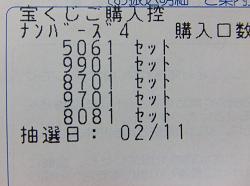 宝くじご購入控
ﾅﾝﾊﾞｰｽﾞ4 購入口数
5061 セット
9901 セット
8701 セット
9701 セット
8081 セット
抽選日: 02/11